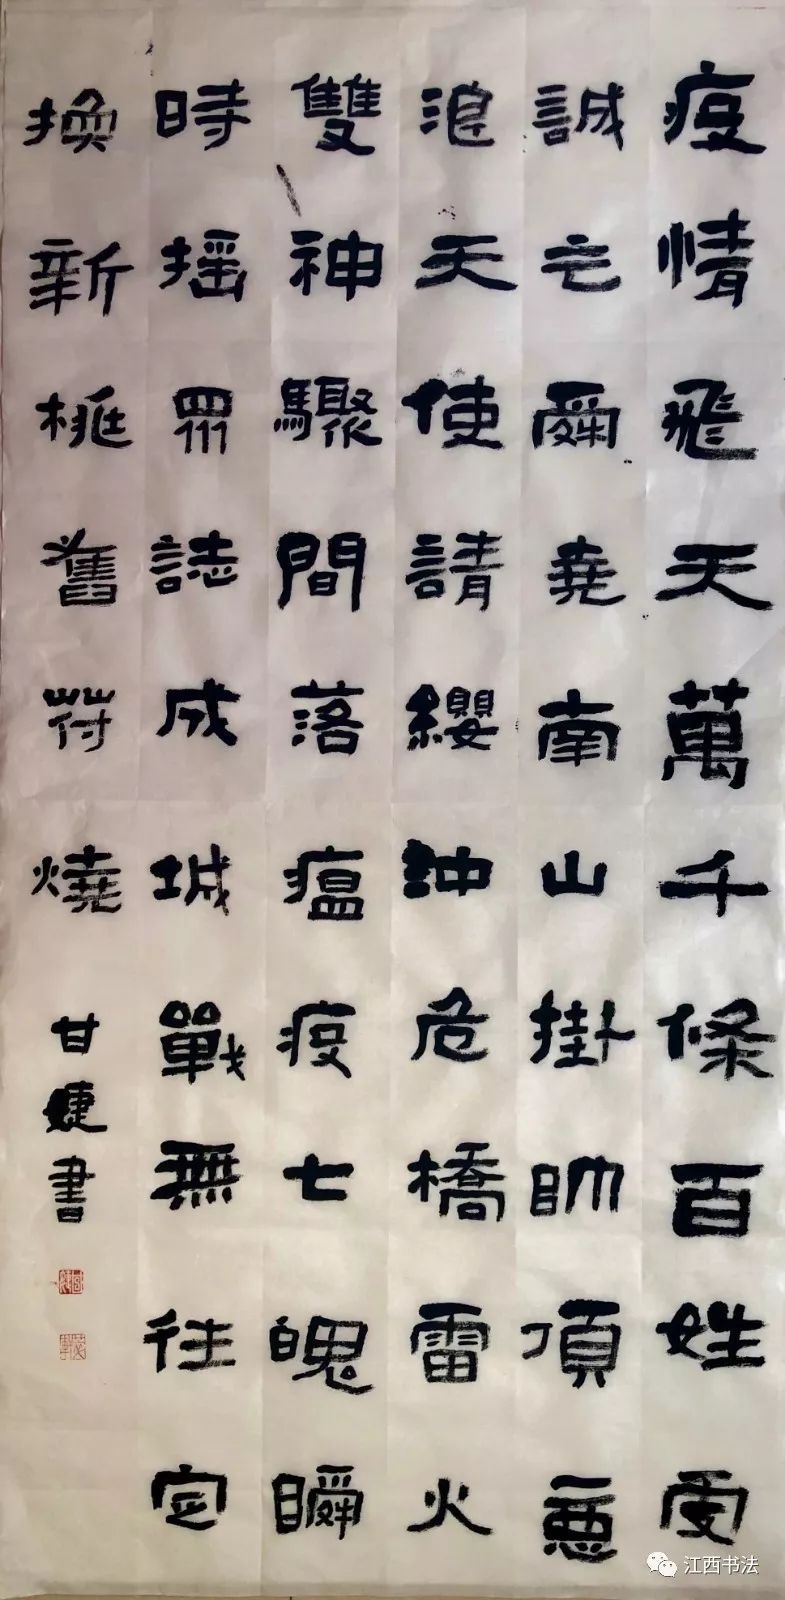 疫情飛天萬千條百姓虔
誠亡舜堯南山掛帥頂惡
浪天使請纓沖危橋雷火
雙神驟間落瘟疫七魄瞬
時摇眾誌成城戰無往定
換新桃舊符燒
甘婕書
江西书法